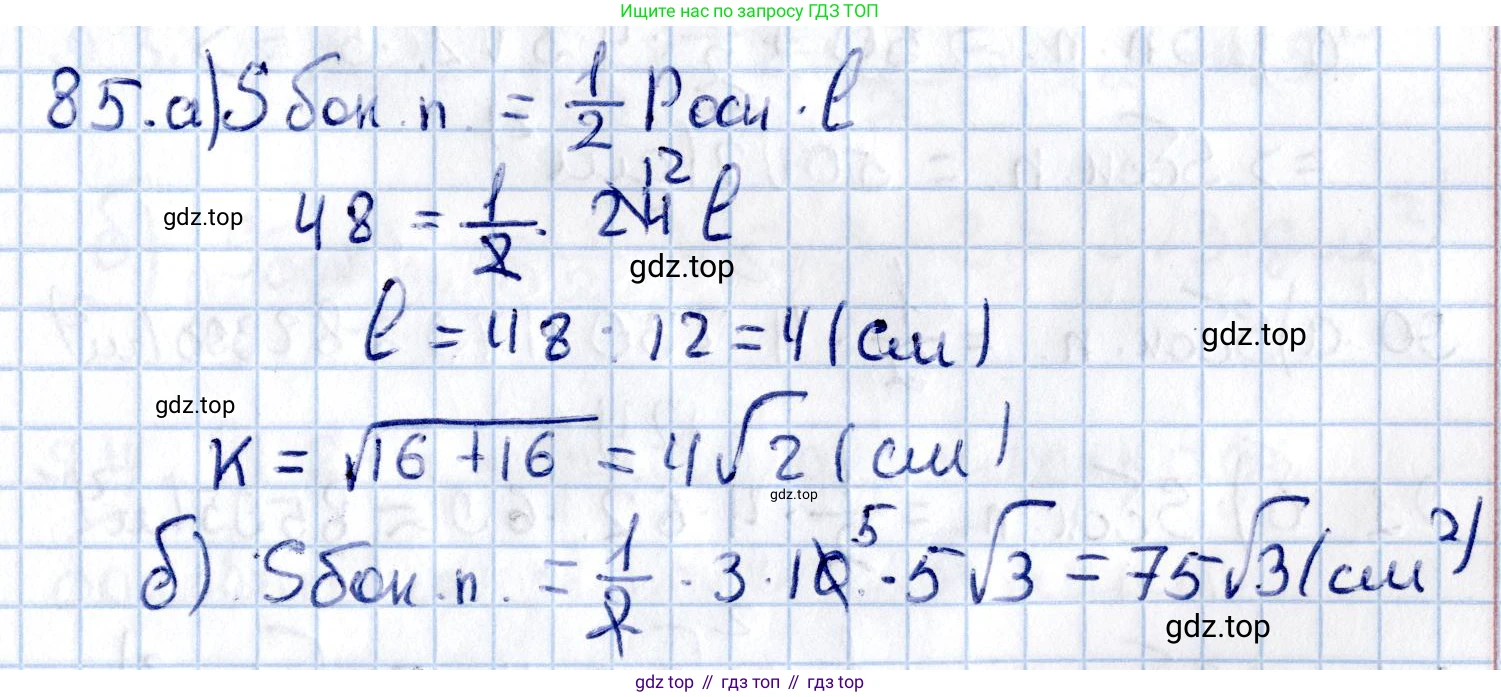 Ищите нас по запросу ГДЗ ТОП
85.а) Sбок.п. = 1/2 Pосн · l
48 = 1/2 · 24 12 l
gdz.top
gdz.top
l = 48 : 12 = 4 (см)
gdz.top
gdz.top
K = √16 + 16 = 4√2 (см)
gdz.top
б) Sбок.п. = 1/2 · 3 · 10 5 · 5√3 = 75√3 (см²)
gdz.top
gdz top // гдз топ // гдз top